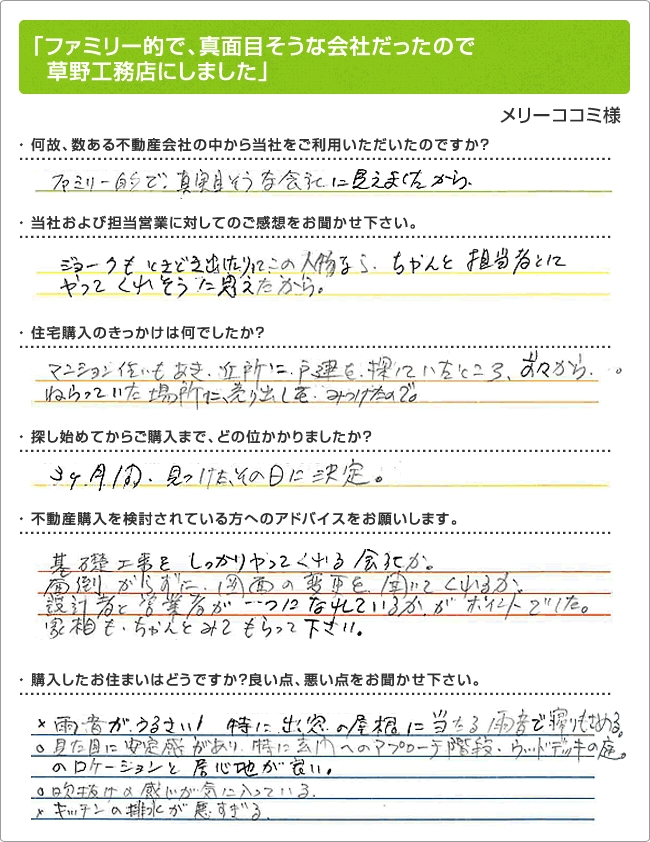 「ファミリー的で、真面目そうな会社だったので
草野工務店にしました」
メリーココミ様
・何故、数ある不動産会社の中から当社をご利用いただいたのですか?
ファミリー的で、真面目そうな会社に見えましたから、
・当社および担当営業に対してのご感想をお聞かせ下さい。
ジョークもときどき出たりにこの人物なら、ちゃんと担当者とに
やってくれそうに思えたから。
・住宅購入のきっかけは何でしたか?
マンション住いもあき、近所に、戸建を、探していたところ、前々から、。
ねらっていた場所に、売り出しを、みつけたので。
・探し始めてからご購入まで、どの位かかりましたか?
3ヶ月間、見つけた、その日に決定。
・不動産購入を検討されている方へのアドバイスをお願いします。
基礎工事をしっかりやってくれる会社か。
面倒がらずに、図面の変更を、聞いてくれるか、
設計者と営業者が一つになれているか、がポイントでした。
家相も、ちゃんとみてもらって下さい。
・購入したお住まいはどうですか?良い点、悪い点をお聞かせ下さい。
×雨音がうるさい! 特に出窓の屋根に当たる雨音で寝りもさめる。
○見た目に安定感があり、特に玄関へのアプローチ階段・ウッドデッキの庭。
のロケーションと居心地が良い。
○吹抜けの感じが気に入っている。
×キッチンの排水が悪すぎる。